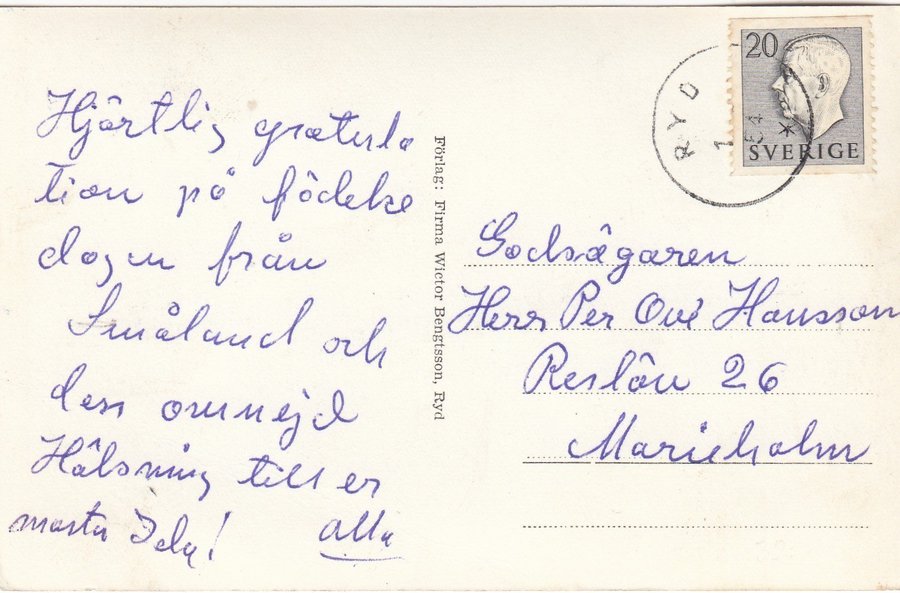 Hjärtlig gratula
tion på födelse
dagen från
Småland och
dess omnejd
Hälsning till er
alla
moster Ida!
Förlag: Firma Wictor Bengtsson, Ryd
RYD
1
20
SVERIGE
Godsägaren
Herr Per Ove Hansson
Reslöv 26
Marieholm